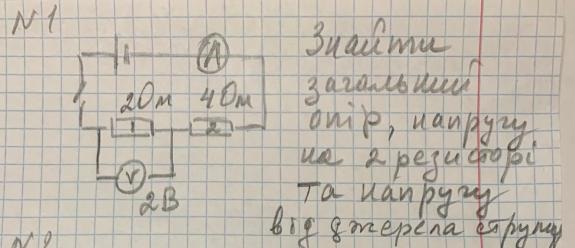 N1
A
2Ом 4Ом
1 2
V
2В
Знайти
загальний
опір, напругу
на 2 резисторі
та напругу
від джерела струму
N2